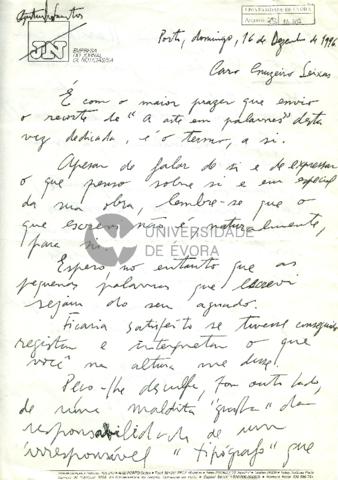 UNIVERSIDADE DE ÉVORA
JN
EMPRESA
DO JORNAL
DE NOTÍCIAS, SA
Porto, domingo, 16 de Dezembro de 1996
Caro Cruzeiro Seixas
É com o maior prazer que envio
o recorte de "A arte em palavras" desta
vez dedicada, é o termo, a si.
Apesar de falar de si e de expressar
o que penso sobre si e em especial
da sua obra, lembre-se que o
que escrevi não é, naturalmente,
para si.
UNIVERSIDADE
DE ÉVORA
Espero no entanto que as
pequenas palavras que escrevi
sejam do seu agrado.
Ficaria satisfeito se tivesse conseguido
registar e interpretar o que
você na altura me disse.
Peço-lhe desculpa, por outro lado,
de uma maldita "gralha" da
responsabilidade de um
irresponsável "tipógrafo" que